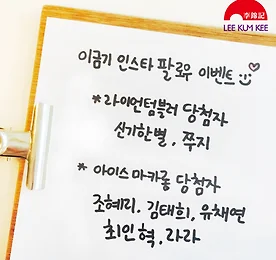 李錦記
LEE KUM KEE
이금기 인스타 팔로우 이벤트
*라이언텀블러 당첨자
신기한별, 쭈지
*아이스 마카롱 당첨자
조혜리, 김태희, 유채연
최인혁, 라라